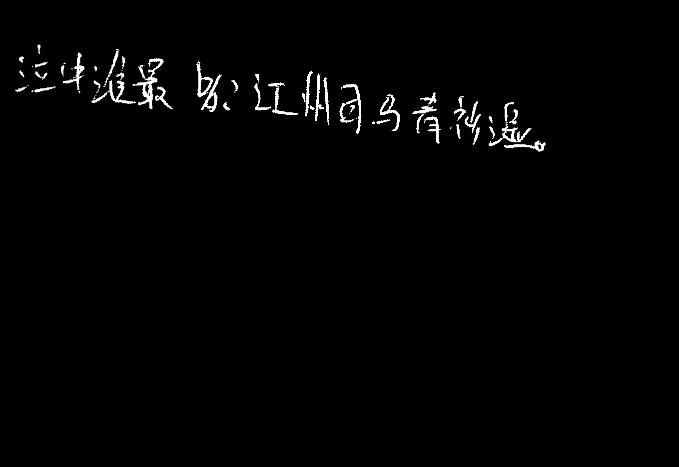 泣中谁最多？江州司马青衫湿。